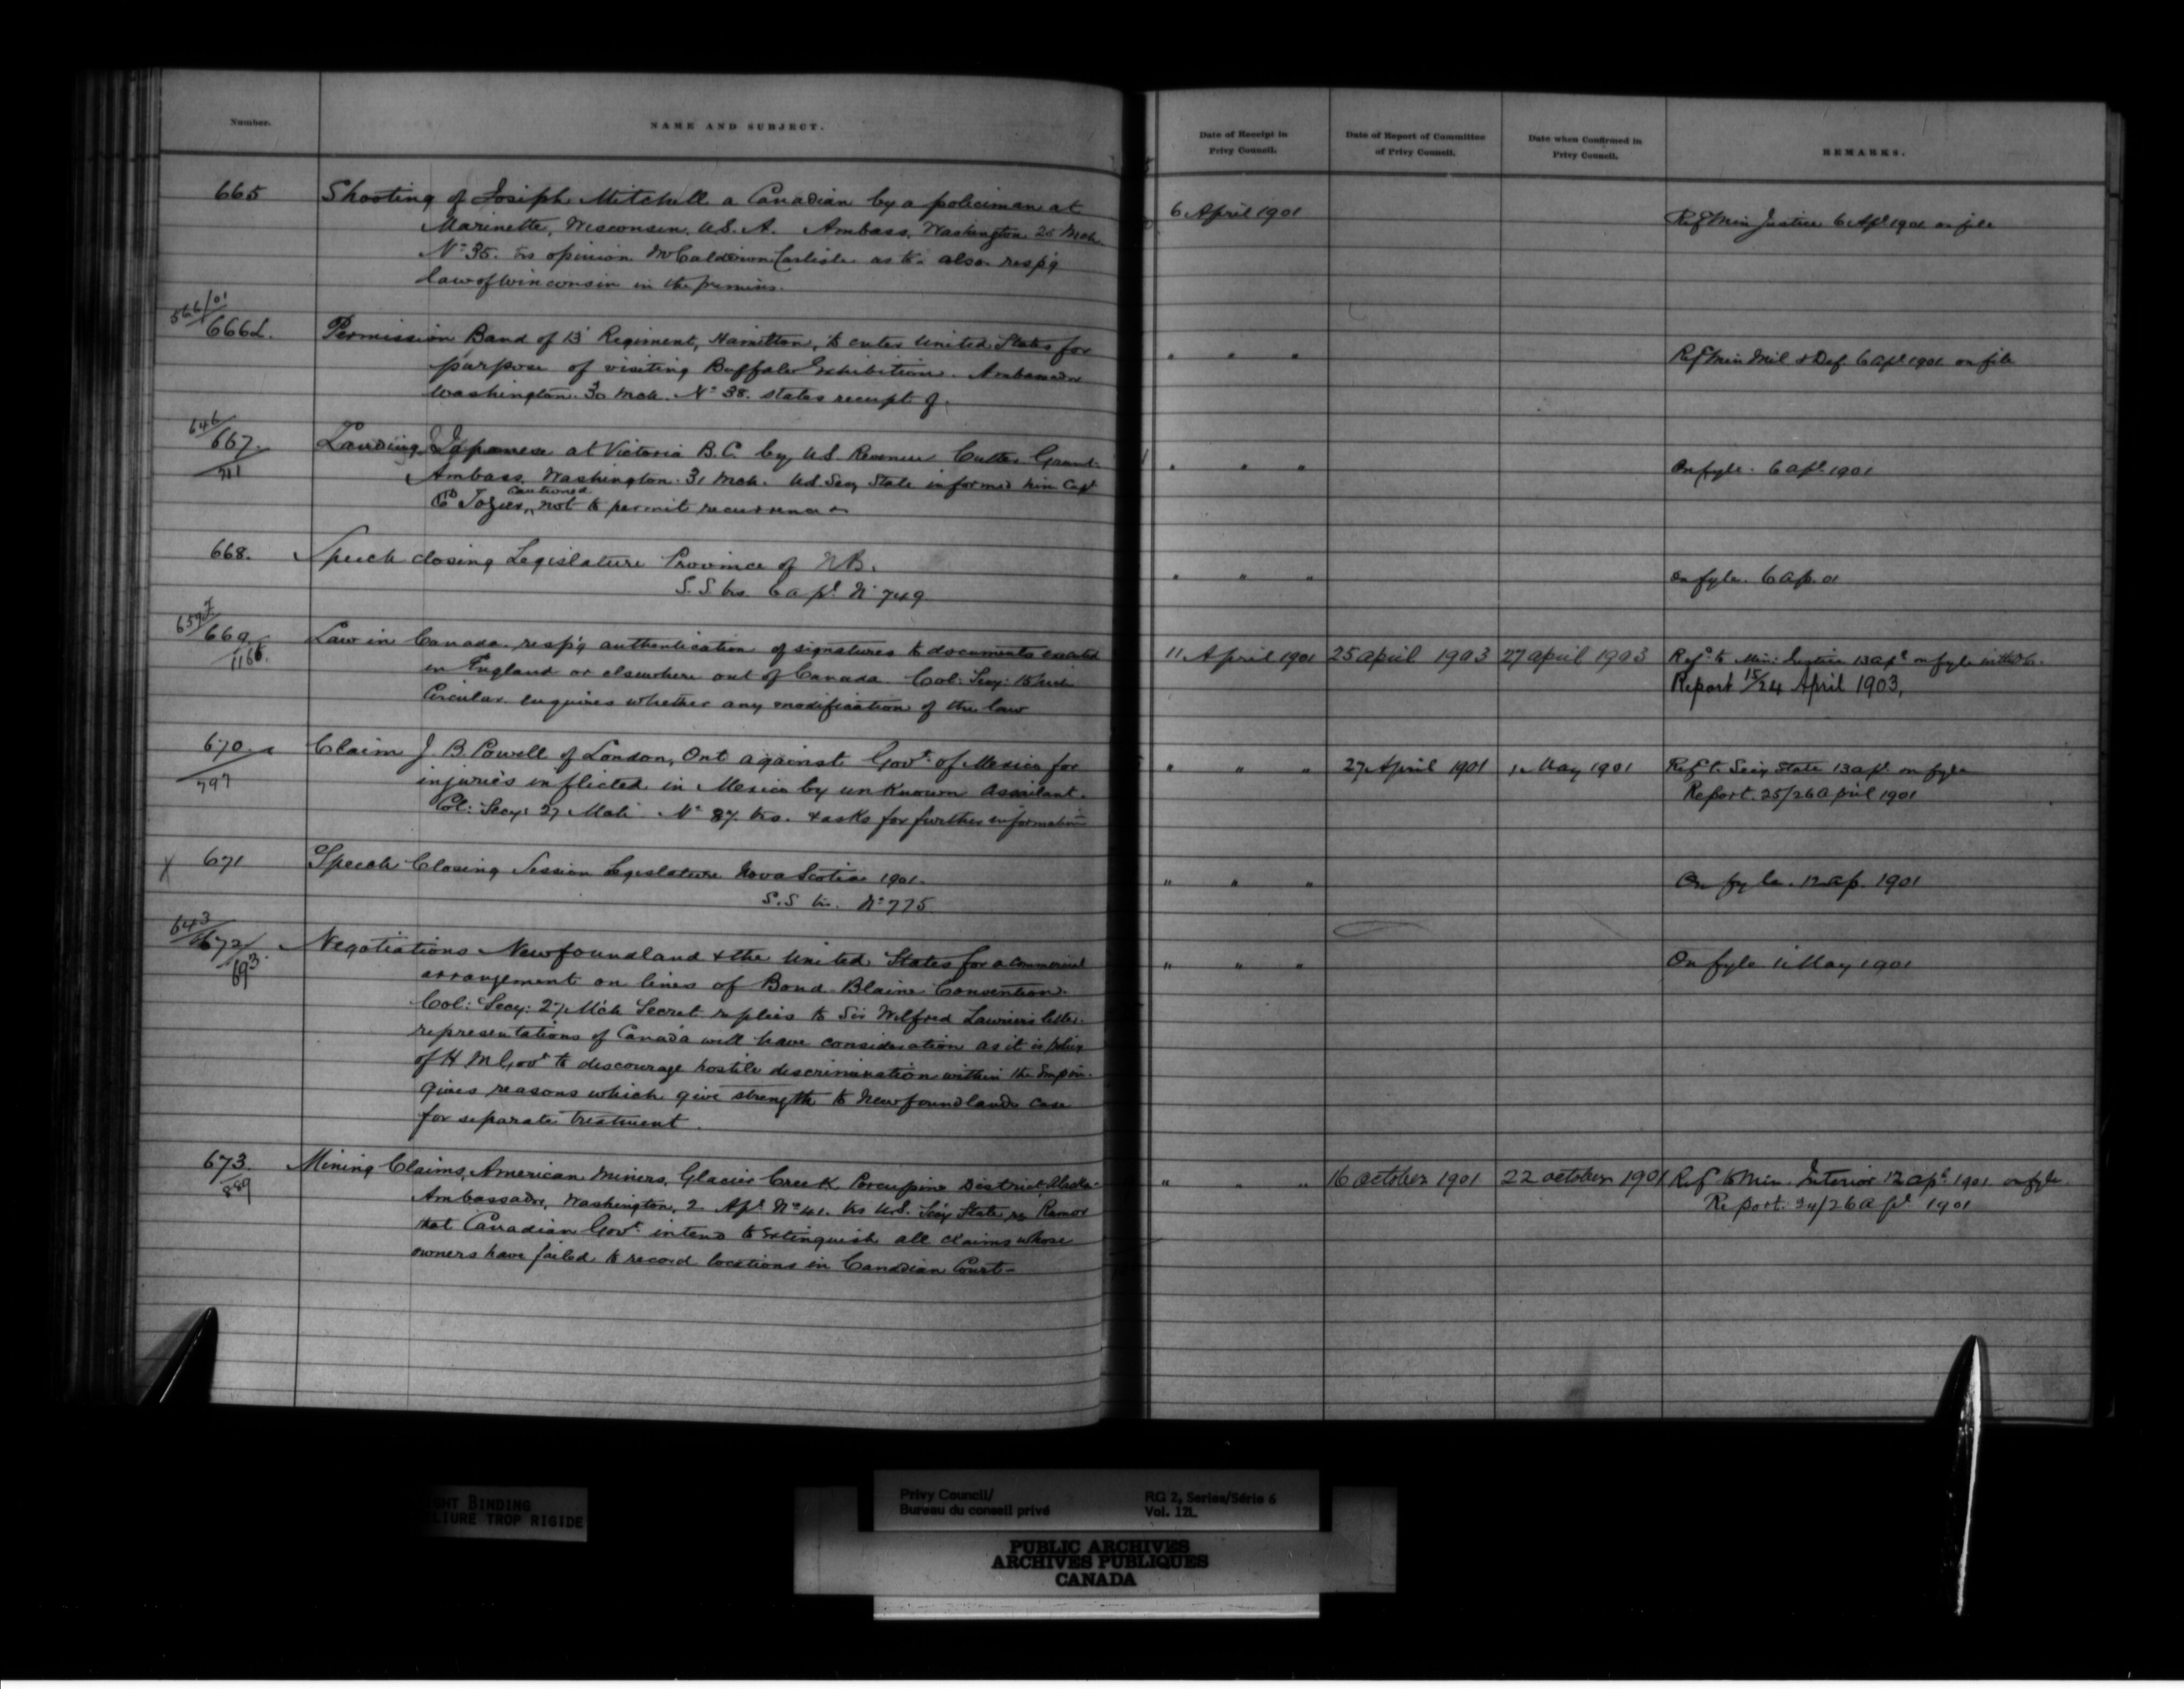 Number.
NAME AND SUBJECT.
Date of Receipt in
Privy Council.
Date of Report of Committee
of Privy Council.
Date when Confirmed in
Privy Council.
REMARKS.
665 Shooting of Joseph Mitchell a Canadian by a policeman at
Marinette, Wisconsin, U.S.A. Ambass. Washington 26 Mch
No 35. trs opinion Mr Calderon Carlisle as to - also resp'g
law of Winconsin in the premises.
6 April 1901
Ref Min Justice 6 Apl 1901 on file
566/01
666 L. Permission Band of 13 Regiment, Hamilton, to enter United States for
purpose of visiting Buffalo Exhibition. Ambassador
Washington 30 Mch. No 38. states receipt of.
" " "
Ref Min Mil & Def. 6 apl 1901 on file
646
667. Landing Japanese at Victoria B.C. by U.S. Revenue Cutter Grant.
711
Ambass. Washington 31 Mch. US Secy State informed him Capt
cautioned
Tozier, not to permit recurrence
" " "
On fyle. 6 apl 1901
668. Speech closing Legislature Province of N.B.
S.S. trs 6 apl No 749
" " "
On fyle. 6 ap. 01
659
669 Law in Canada resp'g authentication of signatures to documents executed
1166.
in England or elsewhere out of Canada. Col: Secy: 15
Circular enquires whether any modification of the law
11 April 1901 25 april 1903 27 april 1903
Refd to Min: Justice 13 apl on fyle
Report 15/24 April 1903,
670. Claim J. B. Powell of London, Ont against Govt of Mexico for
797
injuries inflicted in Mexico by unknown assailant.
Col: Secy: 27 Mch No 87 trs. & asks for further information
" " " 27 April 1901 1 May 1901
Ref t. Secy State 13 apl on fyle
Report. 25/26 april 1901
X 671 Speech Closing Session Legislature Nova Scotia 1901.
S.S trs. No 775
" " "
On fyle. 12 ap. 1901
643
672 Negotiations Newfoundland & the United States for a commercial
693.
arrangement on lines of Bond-Blaine Convention.
Col: Secy: 27 Mch Secret replies to Sir Wilfred Lauriers letter.
representations of Canada will have consideration as it is policy
of H M Govt to discourage hostile discrimination within the Empire.
Gives reasons which give strength to Newfoundlands case
for separate treatment.
" " "
On fyle 11 May 1901
673. Mining Claims, American Miners, Glacier Creek Porcupine District Alaska
889
Ambassador, Washington, 2 Apl No 41. trs U.S. Secy State re Rumor
that Canadian Govt intend to extinguish all claims whose
owners have failed to record locations in Canadian Court-
" " " 16 october 1901 22 october 1901
Ref to Min. Interior 12 apl 1901 on fyle.
Report. 24/26 apl 1901
GHT BINDING
LIURE TROP RIGIDE
Privy Council/
Bureau du conseil privé
RG 2, Series/Série 6
Vol. 121.
PUBLIC ARCHIVES
ARCHIVES PUBLIQUES
CANADA